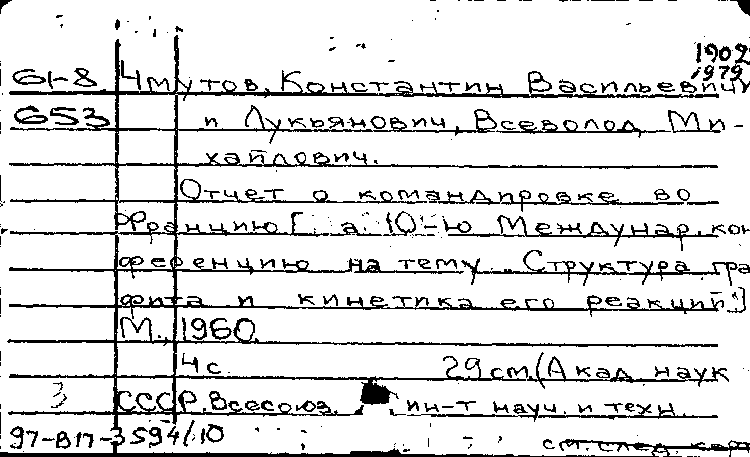 1902
1979
61-8 Чмутов, Константин Васильевич
653 и Лукьянович, Всеволод Ми-
хайлович.
Отчет о командировке во
Францию [ а 10-ю Междунар. кон
ференцию на тему "Структура гра
фита и кинетика его реакций"]
М., 1960.
4 с. 29 см. (Акад. наук
3 СССР. Всесоюз. ин-т науч. и техн.
97-В17-3594/10
см. след. кар